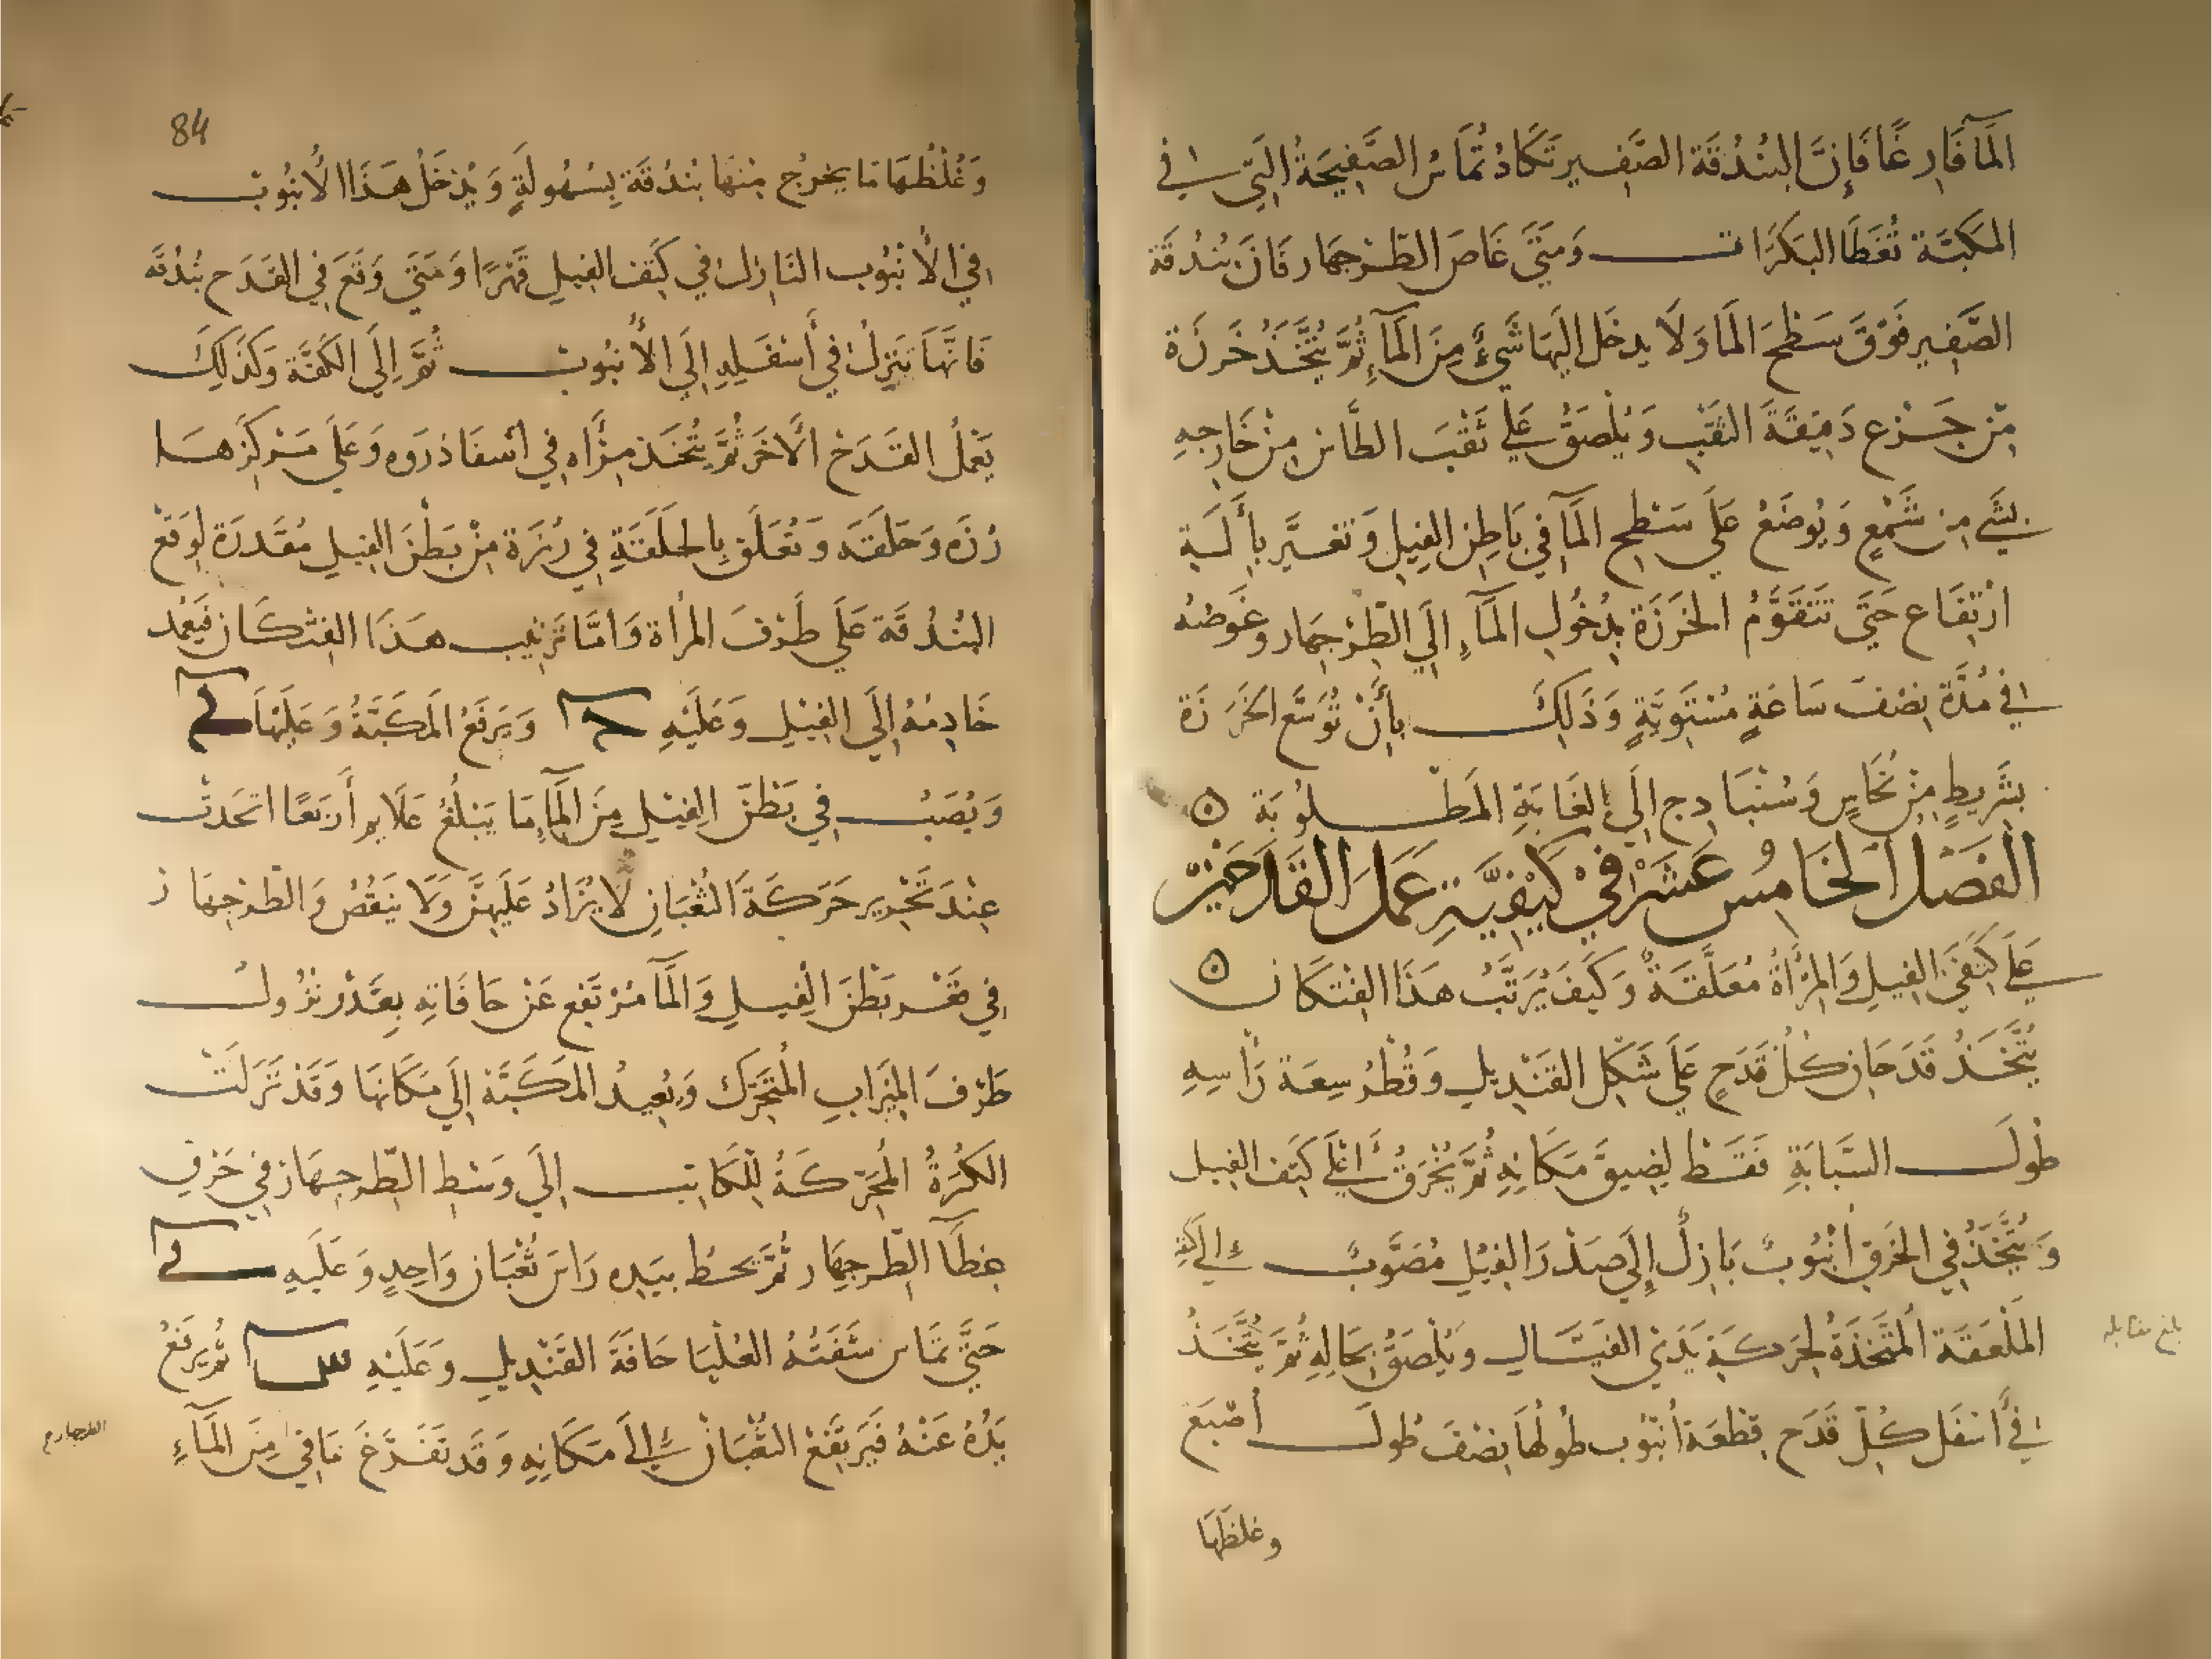 الماء فارغا فإن البندقة الصفير تكاد تماس الصفيحة التي في
المكبة تغطا البكرات ومتى غاص الطرجهار فان بندقة
الصفير فوق سطح الما ولا يدخل اليها شيء من الماء ثم يتخذ خرزة
من جزع دقيقة الثقب ويلصق على ثقب الطاس من خارجه
بشي من شمع ويوضع على سطح الماء في باطن الفيل وتعير بألة
ارتفاع حتى تتقوم الخرزة بدخول الماء إلى الطرجهار وغوصه
في مدة نصف ساعة مستوية وذلك بأن توسع الخرزة
بشريط من نحاس وسنبادج إلى الغاية المطلوبة ه
الفصل الخامس عشر في كيفية عمل القدحين
على كتفي الفيل والمرأة معلقة وكيف يرتب هذا الفنكان ه
يتخذ قدحان كل قدح على شكل القنديل وقطر سعة رأسه
طول السبابة فقط لضيق مكانه ثم يخرق أعلى كتف الفيل
ويتخذ في الخرق انبوب نازل إلى صدر الفيل مصوب إلى كفة
الملعقة المتخذة لحركة يدي الفيال ويلصق بحاله ثم يتخذ
في أسفل كل قدح قطعة أنبوب طولها نصف طول أصبع
وغلظها
بلغ مقابله
84
وغلظها ما يخرج منها بندقة بسهولة ويدخل هذا الأنبوب
في الأنبوب النازل في كتف الفيل قهرا ومتى وقع في القدح بندقة
فانها تنزل في أسفله إلى الأنبوب ثم إلى الكفة وكذلك
يعمل القدح الآخر ثم يتخذ مرأه في اسفاذروه وعلى مركزها
رزه وحلقه وتعلق بالحلقة في رزة من بطن الفيل مقدرة لوقع
البندقة على طرف المرأة واما ترتيب هذا الفنكان فيعمد
خادمه إلى الفيل وعليه ويرفع المكبة وعليها
ويصب في بطن الفيل من الماء ما يبلغ علايم أربعا اتخذت
عند تحرير حركة الثعبان لا يزاد عليهن ولا ينقص والطرجهار
في قعر بطن الفيل والماء مرتفع عن حافاته بقدر نزول
طرف الميزاب المتحرك ويعيد المكبة إلى مكانها وقد نزلت
الكرة المحركة للكاتب إلى وسط الطرجهار في خرق
غطا الطرجهار ثم يحط بيده راس ثعبان واحد وعليه
حتى تماس شفته العليا حافة القنديل وعليه ثم يرفع
يده عنه فيرتفع الثعبان إلى مكانه وقد تفدغ ما في من الماء